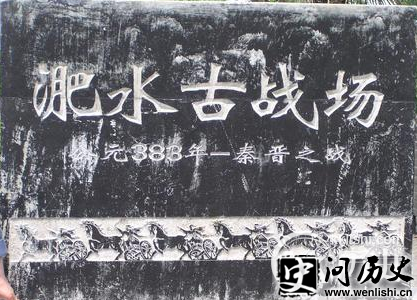 淝水古战场
公元383年—秦晋之战
史问历史
www.wenlishi.cn